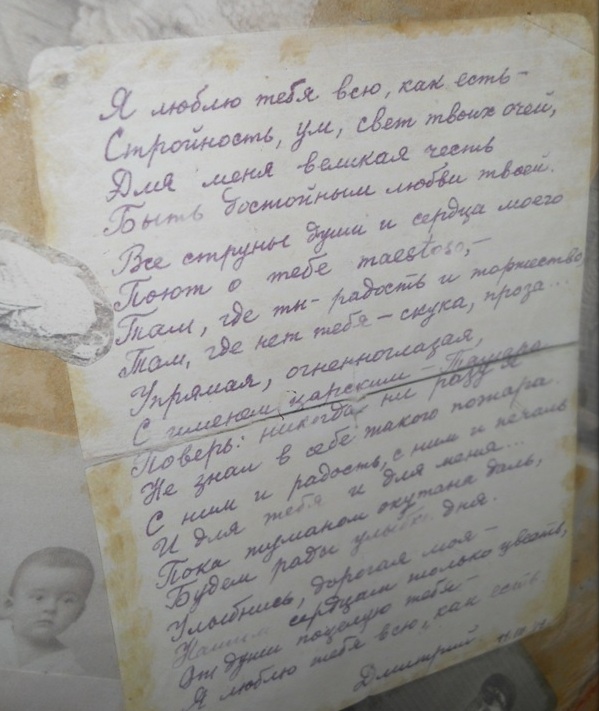 Я люблю тебя всю, как есть -
Стройность, ум, свет твоих очей,
Для меня великая честь
Быть достойным любви твоей.
Все струны души и сердца моего
Поют о тебе maestoso, -
Там, где ты - радость и торжество
Там, где нет тебя - скука, проза...
Упрямая, огненноглазая,
С именем царским - Тамара
Поверь: никогда, ни разу я
Не знал в себе такого пожара.
С ним и радость, с ним и печаль
И для тебя и для меня...
Пока туманом окутана даль,
Будем рады улыбке дня.
Улыбнись, дорогая моя -
Нашим сердцам только цвесть,
От души поцелую тебя -
Я люблю тебя всю, как есть
Дмитрий